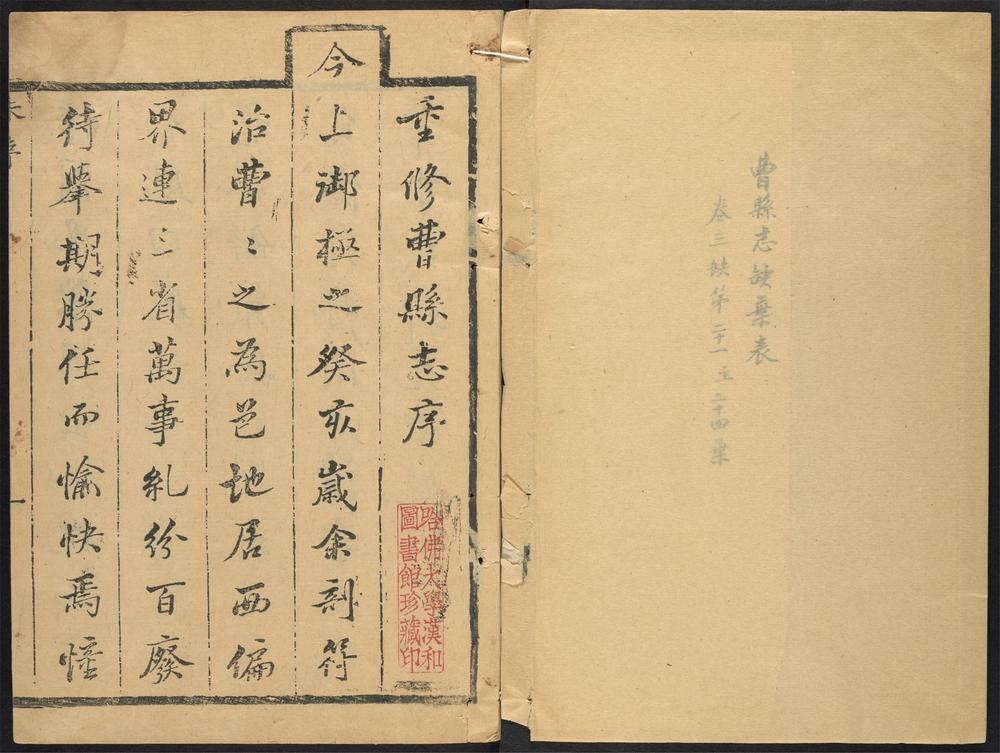 曹縣志缺葉表
卷三缺第二十一至二十四葉
重修曹縣志序
哈佛大學漢和
圖書館珍藏印
今上御極之癸亥歲余剖符
治曹〻之為邑地居西偏
界連三省萬事糺紛百廢
待舉期勝任而愉快焉憧
序
一